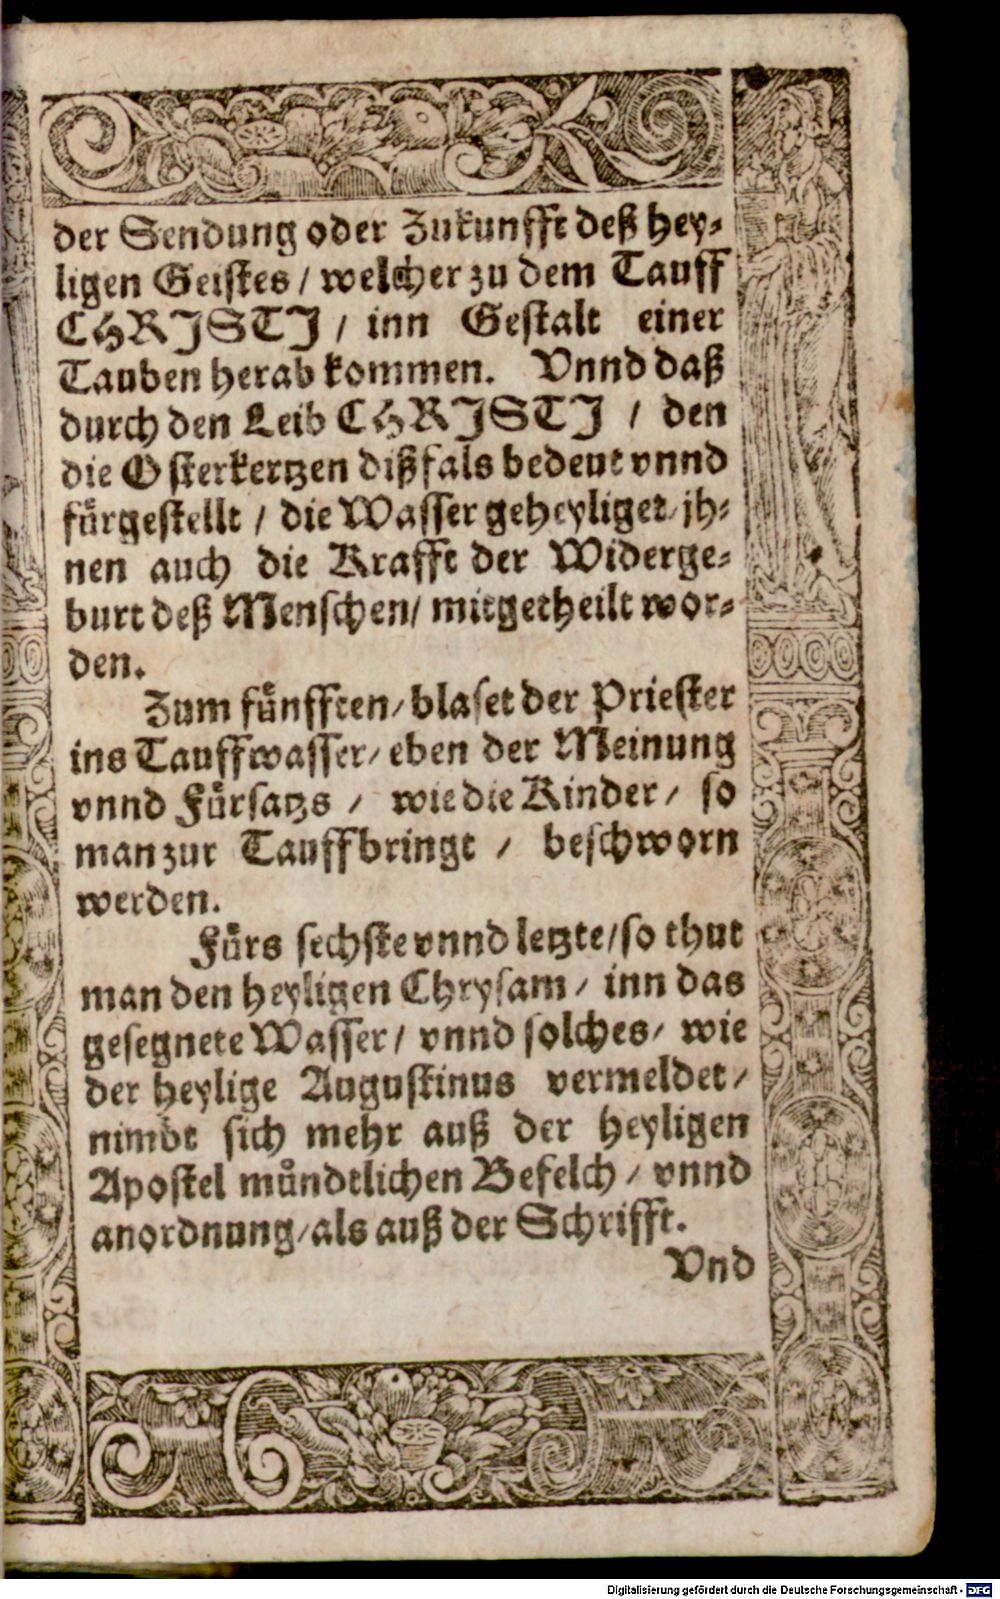 der Sendung oder Zukunfft deß hey⸗
ligen Geistes / welcher zu dem Tauff
CHRJSTJ / inn Gestalt einer
Tauben herab kommen. Vnnd daß
durch den Leib CHRJSTJ / den
die Osterkertzen dißfals bedeut vnnd
fürgestellt / die Wasser geheyliget / jh⸗
nen auch die Krafft der Widerge⸗
burt deß Menschen / mitgetheilt wor⸗
den.
Zum fünfften / blaset der Priester
ins Tauffwasser / eben der Meinung
vnnd Fürsatzs / wie die Kinder / so
man zur Tauff bringt / beschworn
werden.
Fürs sechste vnnd letzte / so thut
man den heyligen Chrysam / inn das
gesegnete Wasser / vnnd solches / wie
der heylige Augustinus vermeldet /
nimbt sich mehr auß der heyligen
Apostel mündtlichen Befelch / vnnd
anordnung / als auß der Schrifft.
Vnd
Digitalisierung gefördert durch die Deutsche Forschungsgemeinschaft - DFG